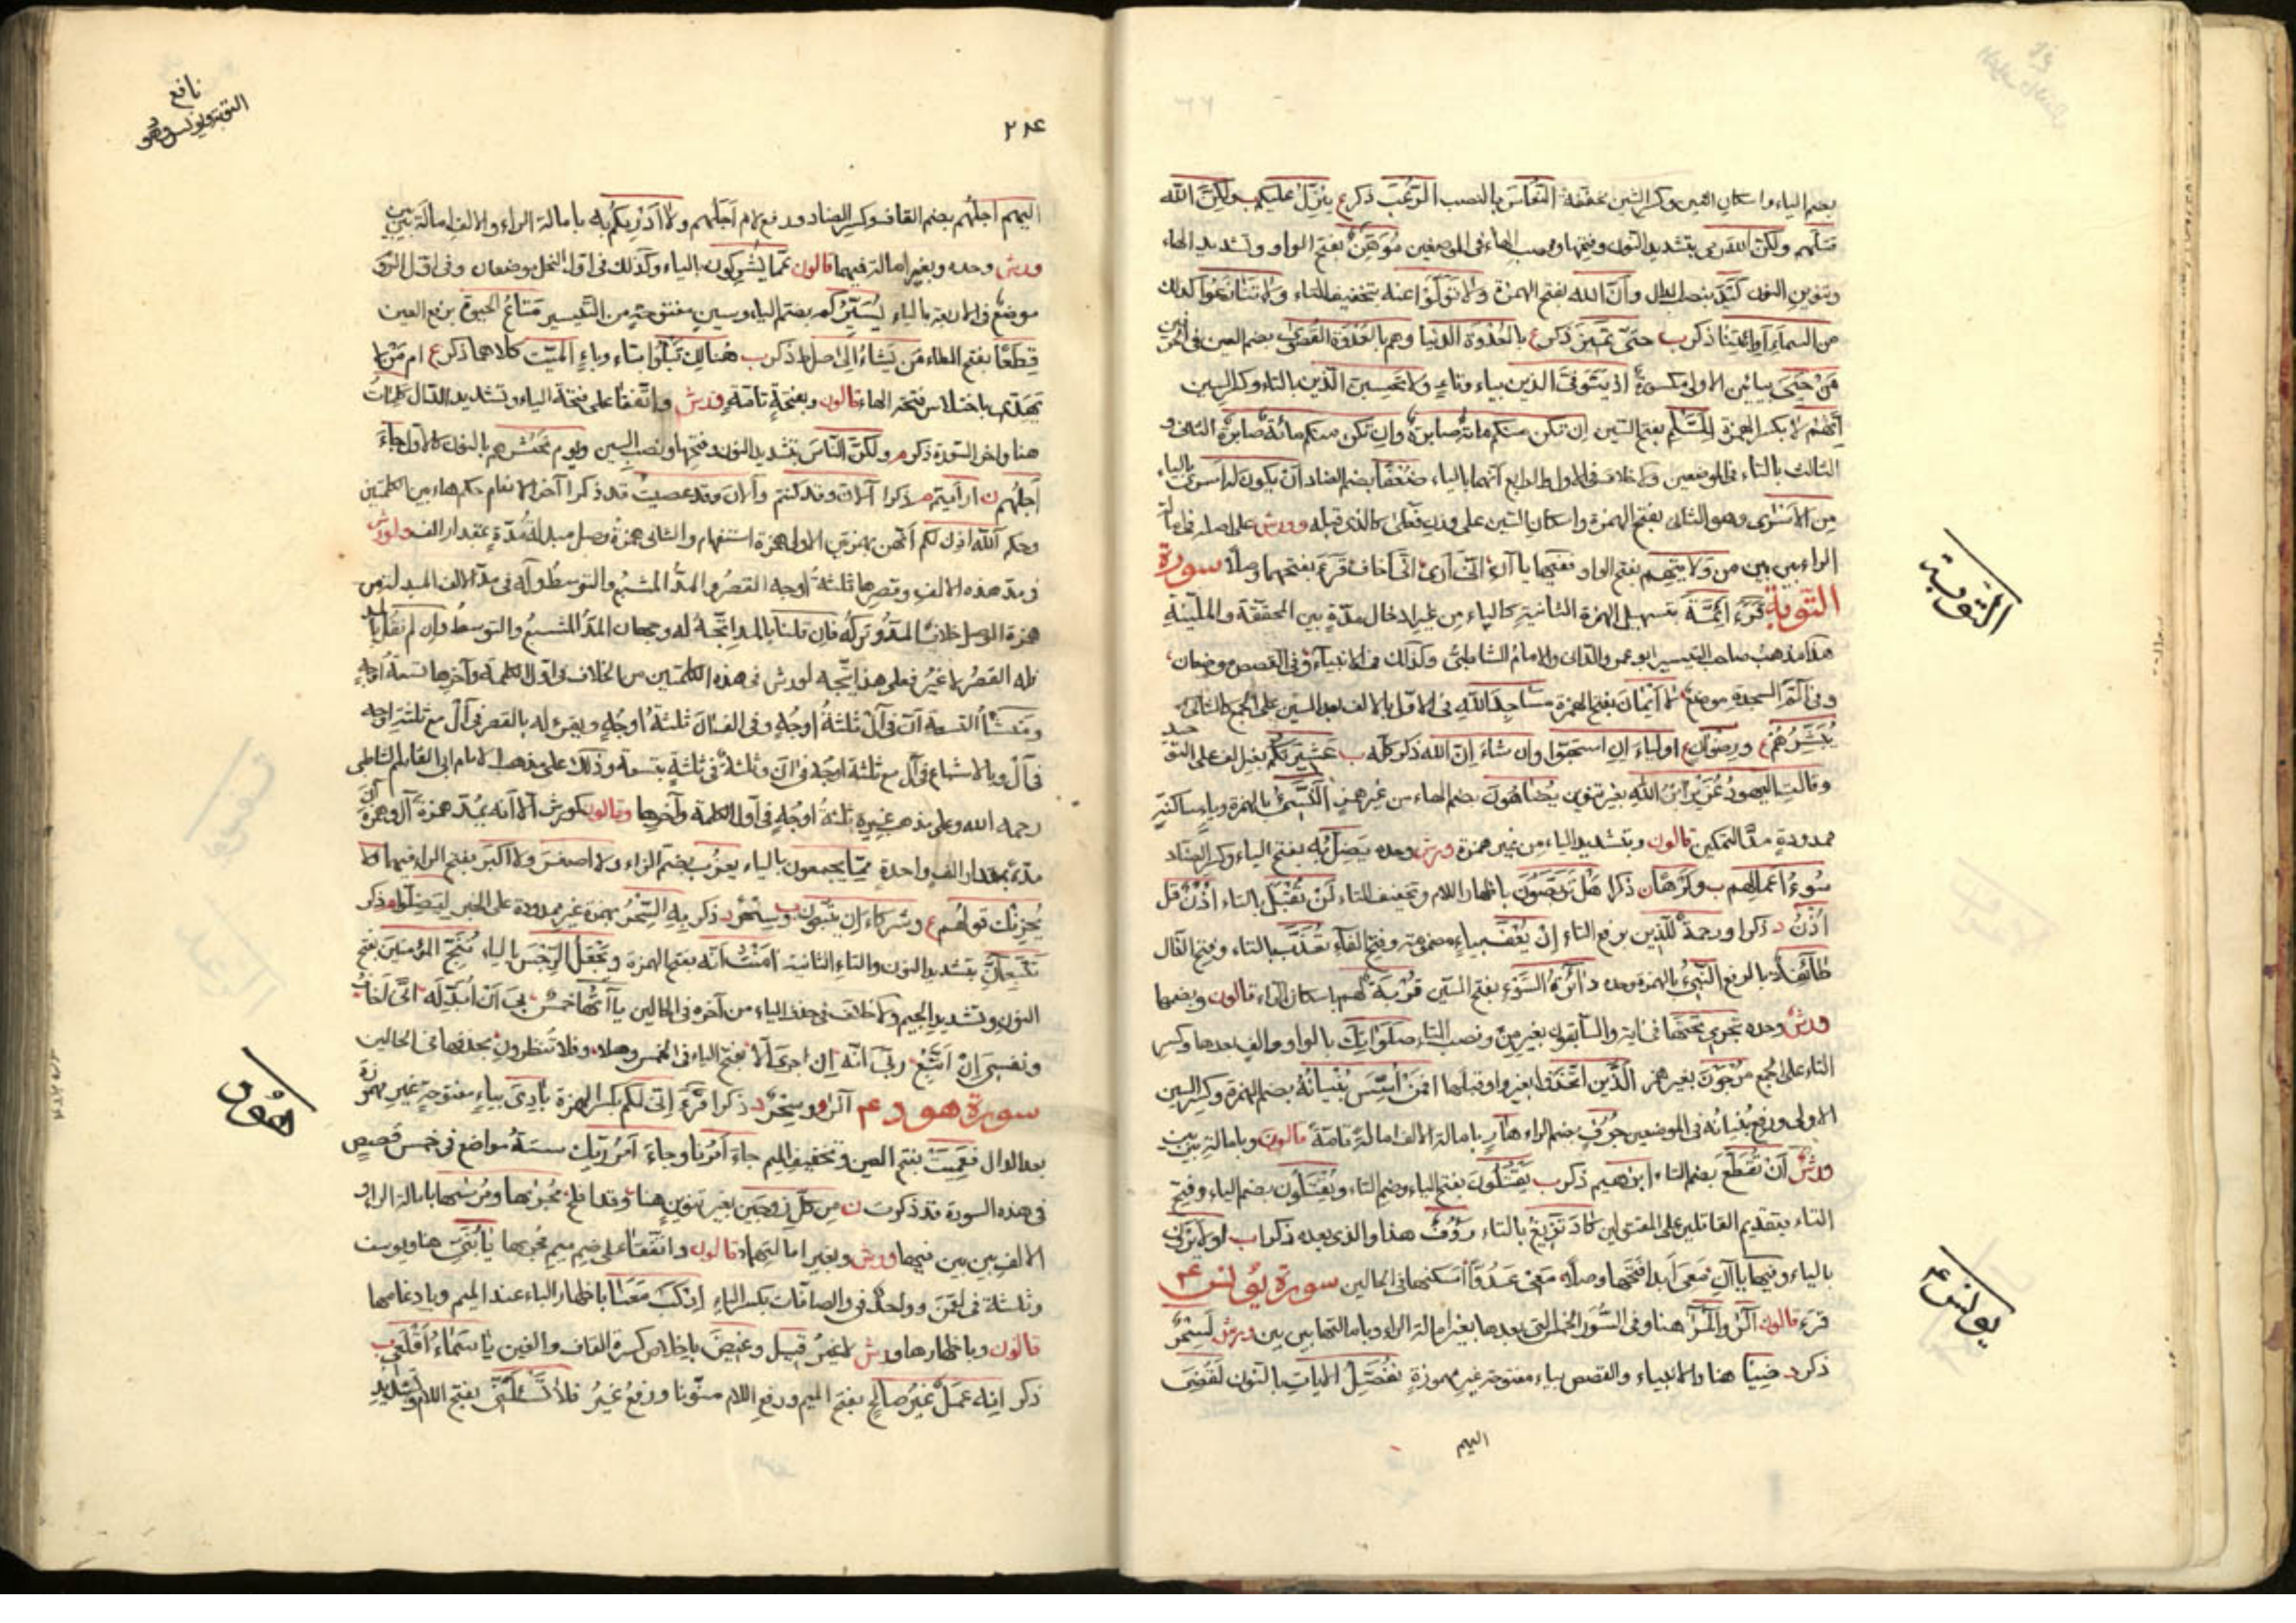 بضم الياء واسكان الغين وكسر الشين مخففة النعاس بالنصب الرعب ذكر ع ينزل عليكم ب ولكن الله
قتلهم ولكن الله رمى بتشديد النون وفتحها ونصب الهاء فى الموضعين موهن بفتح الواو وتشديد الهاء
وتنوين النون كيد بنصب الدال وأن الله بفتح الهمزة ولا تولوا عنه بتخفيف التاء ولا تنازعوا كذلك
من السماء أو ائتنا ذكر ب حتى يميز ذكر ع بالعدوة الدنيا وهم بالعدوة القصوى بضم العين فى
من حيي بيائين الاولى مكسورة اذ يتوفى الذين بياء وتاء ولا تحسبن الذين بالتاء وكسر السين
انهم لا بكسر الهمزة للسلم بفتح السين ان تكن منكم مائة صابرة وان تكن منكم مائة صابرة الثانى و
الثالث بالتاء فى الموضعين ولا خلاف فى الاول والرابع انهما بالياء ضعفا بضم الضاد أن يكون له اسرى بالياء
من الاسرى وهو الثانى بفتح الهمزة واسكان السين على وزن فعلى كالذى قبله وورش على اصله فى
الراء بين بين من ولايتهم بفتح الواو فيها يا آن انى ارى انى اخاف قرء بفتحهما وصلا سورة
التوبة قرء ائمة بتسهيل الهمزة الثانية كالياء من غير ادخال مدة بين المحققة والملينة
هذا مذهب صاحب التيسير ابو عمرو الدانى والامام الشاطبى وكذلك فى الانبياء وفى القصص موضعان
وفى الم السجدة موضع لا أيمان بفتح الهمزة مساجد الله فى الاول بالالف بعد السين على الجمع كالثانى
يبشرهم ع ورضوان ع اولياء ان استحبوا وان شاء ان الله ذكر كله ب عشيرتكم بغير الف على التوحيد
وقالت اليهود عزير ابن الله بغير تنوين يضاهون بضم الهاء من غير همز النسىء بالهمزة وياء ساكنة
ممدودة مد التمكين قالون وبتشديد الياء من غير همزة ورش وحده يضل به بفتح الياء وكسر الضاد
سوء اعمالهم ب وكرها ن ذكرا هل تربصون باظهار اللام وتخفيف التاء ان تقبل بالتاء اذن قل
اذن د ذكرا ورحمة للذين برفع التاء ان يعف بياء مضمومة وفتح الفاء تعذب بالتاء وفتح الذال
طائفة بالرفع النبىء بالهمزة وحده دائرة السوء بفتح السين قربة لهم باسكان الراء قالون وبضمها
ورش وحده تجرى تحتها فى اية والسابقون بغير من ونصب التاء صلواتك بالواو والف بعدها وكسر
التاء على الجمع مرجون بغير همز الذين اتخذوا بغير واو قبلها افمن أسس بنيانه بضم الهمزة وكسر السين
الاولى ورفع بنيانه فى الموضعين جرف بضم الراء هار بامالة الالف امالة تامة قالون وبامالة بين بين
ورش أن تقطع بضم التاء ابراهيم ذكر ب يقتلون بفتح الياء وضم التاء ويقتلون بضم الياء وفتح
التاء بتقديم القاتلين على المقتولين كاد تزيغ بالتاء رؤف هذا والذى بعده ذكرا ب اولا يرون
بالياء وفيها يا آن معى ابدا فتحها وصلا معى عدوا اسكنها فى الحالين سورة يونس عم
قرء قالون الر والمر هنا وفى السور الخمس التى بعدها بغير امالة الراء وبامالتها بين بين ورش لسحر
ذكر د ضياء هنا والانبياء والقصص بياء مفتوحة غير مهموزة نفصل الايات بالنون لقضى
اليهم
التوبة
يونس عم
نافع
التوبة ويونس وهود
٢٨٤
اليهم اجلهم بضم القاف وكسر الضاد ورفع لام اجلهم ولا ادريكم به بامالة الراء والالف امالة بين بين
ورش وحده وبغير امالة فيهما قالون عما يشركون بالياء وكذلك فى اول النحل موضعان وفى اول الروم
موضع فى الاربعة بالياء يسيركم بضم الياء وسين مفتوحة من التيسير متاع الحيوة برفع العين
قطعا بفتح الطاء من يشاء الى صراط ذكر ب هنالك تبلوا بتاء وباء الميت كلاهما ذكر ع ام من لا
يهدى باختلاس فتحة الهاء قالون وبفتحة تامة ورش واتفقا على فتحة الياء وتشديد الدال كلمات
هنا واخر السورة ذكر م ولكن الناس بتشديد النون وفتحها ونصب السين ويوم نحشرهم بالنون كالاول جاء
اجلهم ن ارأيتم م ذكرا آلان وقد كنتم وآلان وقد عصيت قد ذكرا آخر الانعام حكم هاء بين الكلمتين
وحكم آلله اذن لكم انهن بهمزتين الاولى همزة استفهام والثانى همزة وصل مبدلة مدة بمقدار الف ولورش
فى مد هذه الالف وقصرها ثلثة اوجه القصر والمد المشبع والتوسط وله فى مد الالف المبدلة من
همزة الوصل خلاف المد وتركه فان قلنا بالمد اتجه له وجهان المد المشبع والتوسط وان لم نقل بالمد
فله القصر لا غير فعلى هذا يتجه لورش فى هذه الكلمتين من الخلاف فى اول الكلمة وآخرها تسعة اوجه
ومنشأ التسعة أن فى آل ثلثة اوجه وفى الف لان ثلثة اوجه ويقرء له بالقصر فى آل مع ثلثة اوجه
فى آن وبالاشباع فى آل مع ثلثة اوجه فى آن وثلثة فى ثلثة بتسعة وذلك على مذهب الامام ابى القاسم الشاطبى
رحمه الله وعلى مذهب غيره ثلثة اوجه فى أول الكلمة وآخرها وقالون كورش الا انه يمد همزة آل وهمزة آن
مدة بمقدار الف واحدة مما يجمعون بالياء يعزب بضم الزاء ولا اصغر ولا اكبر بفتح الراء فيهما ولا
يحزنك قولهم ع وشركاء ان يتبعون ب وسحر د ذكر به السحر بهمزة غير ممدودة على الخبر ليضلوا م ذكر
تتبعان بتشديد النون والتاء الثانية امنت انه بفتح الهمزة ويجعل الرجس بالياء ننجى المؤمنين بفتح
النون وتشديد الجيم ولا خلاف فى حذف الياء من آخره فى الحالين ياآتها خمس لى أن أبدله انى اخاف
ونفسى ان اتبع ربى انه ان اجرى الا بفتح الياء فى الخمس وصلا ولا تنظرون بحذفها فى الحالين
سورة هود عم الر و وسحر د ذكرا قرء انى لكم بكسر الهمزة بادى بياء مفتوحة غير مهموزة
بعد الدال فعميت بفتح العين وتخفيف الميم جاء أمرنا وجاء امر ربك ستة مواضع فى خمس قصص
فى هذه السورة قد ذكرت ن من كل زوجين بغير تنوين هنا وقد افلح مجريها ومرسيها بامالة الراء و
الالف بين بين فيهما ورش وبغير امالتهما قالون واتفقا على ضم ميم مجريها يا بنى هنا ويوسف
وثلثة فى لقمن وواحد فى والصافات بكسر الياء اركب معنا باظهار الباء عند الميم وبادغامها
قالون وباظهارها ورش لا غير قيل وغيض باخلاص كسرة القاف والغين يا سماء أقلعى ب
ذكر انه عمل غير صالح بفتح الميم ورفع اللام منونا ورفع غير فلا تسئلنى بفتح اللام وتشديد
هود